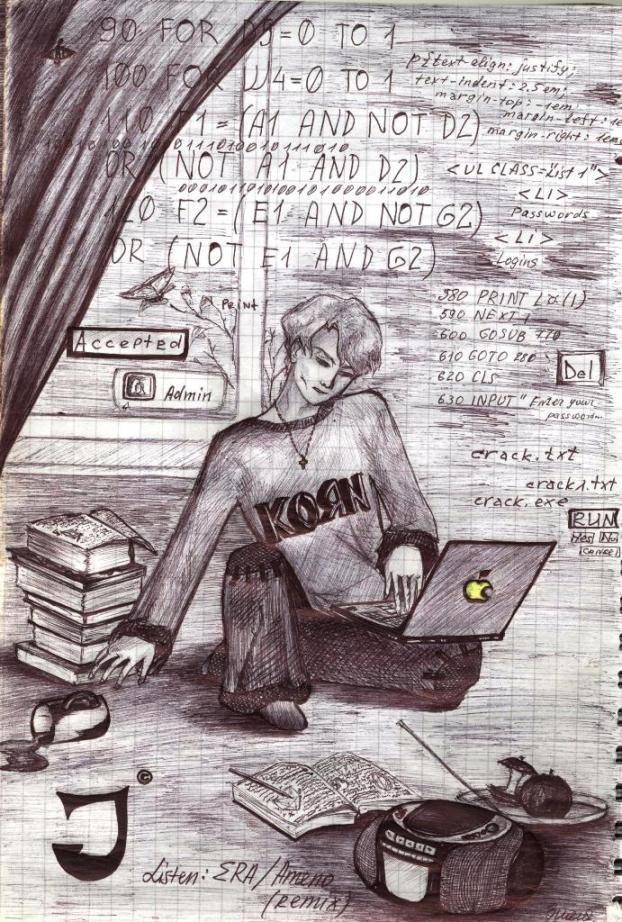 90 FOR D5=0 TO 1
100 FOR W4=0 TO 1
110 F1=(A1 AND NOT D2)
OR (NOT A1 AND D2)
0001011010100101010000011010
120 F2=(E1 AND NOT G2)
OR (NOT E1 AND G2)
p{text-align: justify;
text-indent: 2.5em;
margin-top: -1em
margin-left: 1e
margin-right: 1em
<UL CLASS="List 1">
<LI>
Passwords
<LI>
Logins
Print
Accepted
Admin
580 PRINT L¤(1)
590 NEXT 1
600 GOSUB 170
610 GOTO 280
620 CLS
630 INPUT "Enter your
password...
Del
crack.txt
crack1.txt
crack.exe
RUN
Yes No
CANCEL
KOЯN
J ©
Listen: ΣRA/Ameno
(remix)